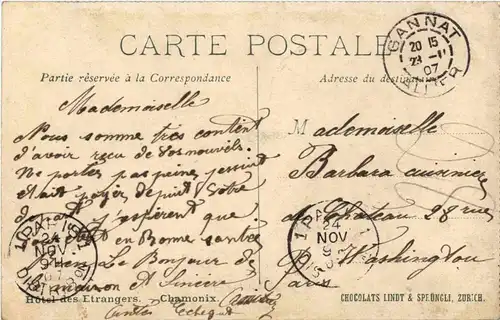 CARTE POSTALE
Partie réservée à la Correspondance
Adresse du destinataire
GANNAT
20 15
23 -11
07
ALLIER
Mademoiselle
Nous somme très content
d'avoir reçu de vos nouvels.
Ne portes pas peine
était depuit Votre
d part j'espèrent que
et en Bonne santée
Le Bonjour de
maison et Sincère
Mademoiselle
Barbara cuisinière
du Chateau 28 rue
Washington
Paris
PARIS
24
NOV
DISTRIBUTION
PARIS
24
NOV
Hôtel des Etrangers. Chamonix.
CHOCOLATS LINDT & SPRÜNGLI, ZURICH.